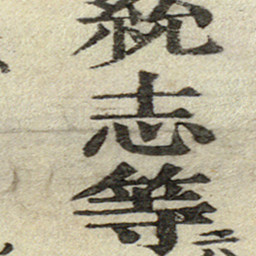 統志等